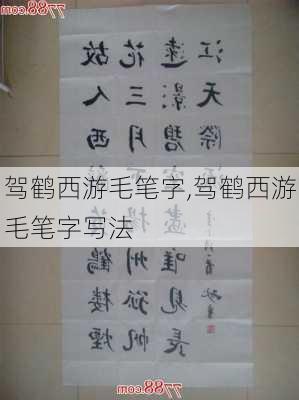 驾鹤西游毛笔字,驾鹤西游
毛笔字写法
故人西鶴樓煙
花三月下揚州孤帆
遠影碧空盡唯見長
江天際
7788.com
7788.com